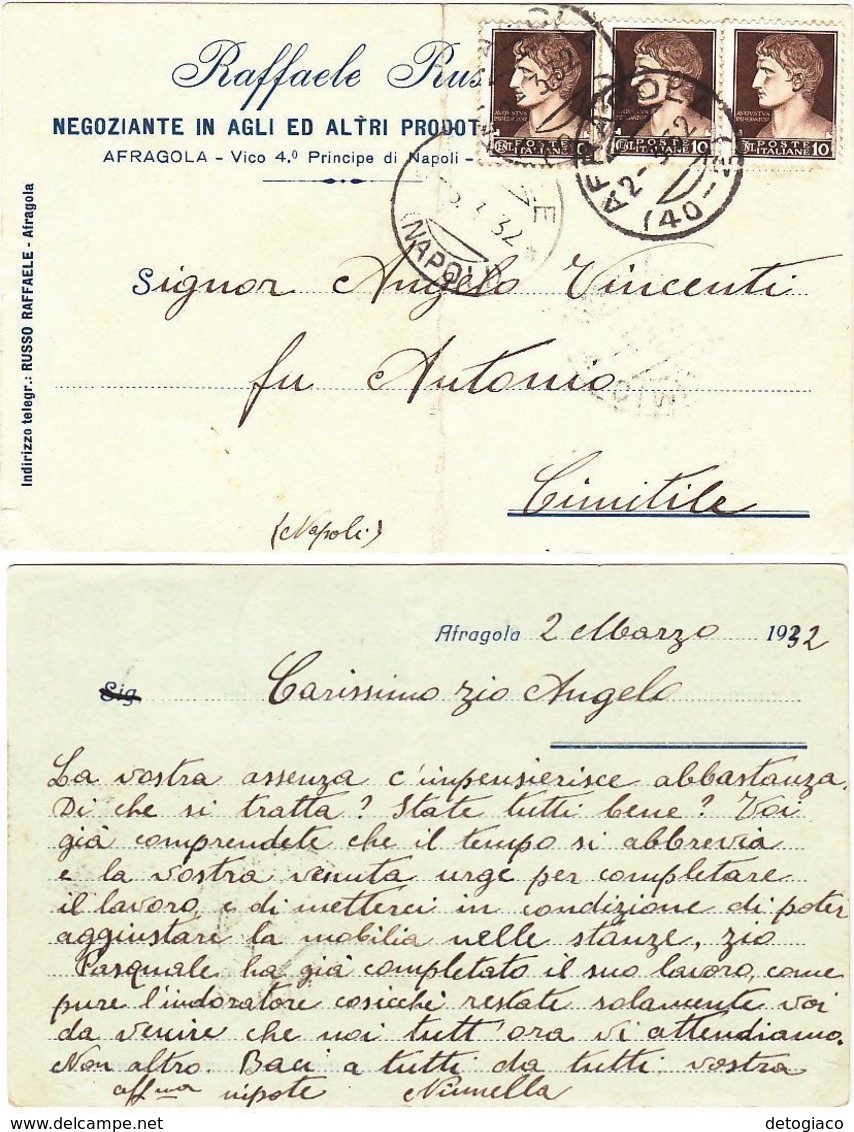 Raffaele Rus
NEGOZIANTE IN AGLI ED ALTRI PRODOT
AFRAGOLA - Vico 4.º Principe di Napoli -
Indirizzo telegr.: RUSSO RAFFAELE - Afragola
POSTE ITALIANE 10
CENT. POSTE ITALIANE 10
CENT. POSTE ITALIANE 10
AFRAGOLA
2-3-32
(40-25)
3.32
(NAPOLI)
Signor Angelo Vincenti
fu Antonio
Cimitile
(Napoli)
Afragola 2 Marzo 1932
Sig
Carissimo zio Angelo
La vostra assenza c'impensierisce abbastanza.
Di che si tratta? State tutti bene? Voi
già comprendete che il tempo si abbrevia
e la vostra venuta urge per completare
il lavoro, e di metterci in condizione di poter
aggiustare la mobilia nelle stanze, zio
Pasquale ha già completato il suo lavoro, come
pure l'indoratore cosicchè restate solamente voi
da venire che noi tutt'ora vi attendiamo.
Non altro. Baci a tutti da tutti vostra
aff.ma nipote Ninnella
detogiaco